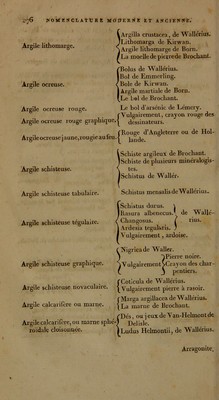 276 NOMENCLATURE MODERNE ET ANCIENNE.
Argile lithomarge.
Argilla crustacea, de Wallérius.
Lithomarga de Kirwan.
Argile lithomarge de Born.
La moelle de pierre de Brochant.
Argile ocreuse.
Bolus de Wallérius.
Bol de Emmerling.
Bole de Kirwan.
Argile martiale de Born.
Le bol de Brochant.
Argile ocreuse rouge.
Le bol d'arménie de Lémery.
Argile ocreuse rouge graphique.
Vulgairement, crayon rouge des
dessinateurs.
Argile ocreuse jaune, rougie au feu.
Rouge d'Angleterre ou de Hol-
lande.
Argile schisteuse.
Schiste argileux de Brochant.
Schiste de plusieurs minéralogis-
tes.
Schistus de Wallér.
Argile schisteuse tabulaire.
Schistus mensalis de Wallérius.
Argile schisteuse tégulaire.
Schistus durus.
Rasura albenocos.
Chongosus.
de Wallé-
rius.
Ardesia tegularis.
Vulgairement, ardoise.
Argile schisteuse graphique.
Nigrica de Waller.
Vulgairement
Pierre noire.
Crayon des char-
pentiers.
Argile schisteuse novaculaire.
Coticula de Wallérius.
Vulgairement pierre à rasoir.
Argile calcarifère ou marne.
Marga argillacea de Wallérius.
La marne de Brochant.
Argile calcarifère, ou marne sphé-
roïdale cloisonnée.
Dés, ou jeux de Van-Helmont de
Delisle.
Ludus Helmontii, de Wallérius.
Arragonite,